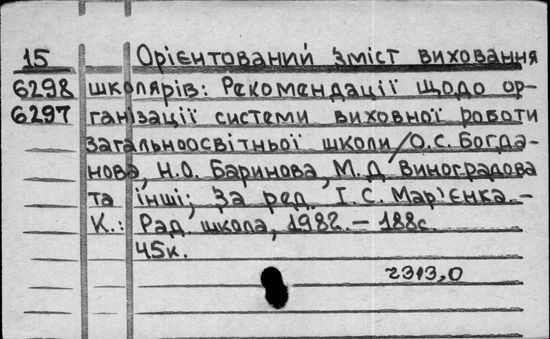 15 Орієнтований зміст виховання
6298 школярів: Рекомендації щодо ор-
6297 ганізації системи виховної роботи
загальноосвітньої школи/О.С. Богда-
нова, Н.О. Баринова, М.Д. Виноградова
та інші; За ред. І.С. Мар'єнка.-
К.: Рад. школа, 1982. - 188с.
45к.
2313,0